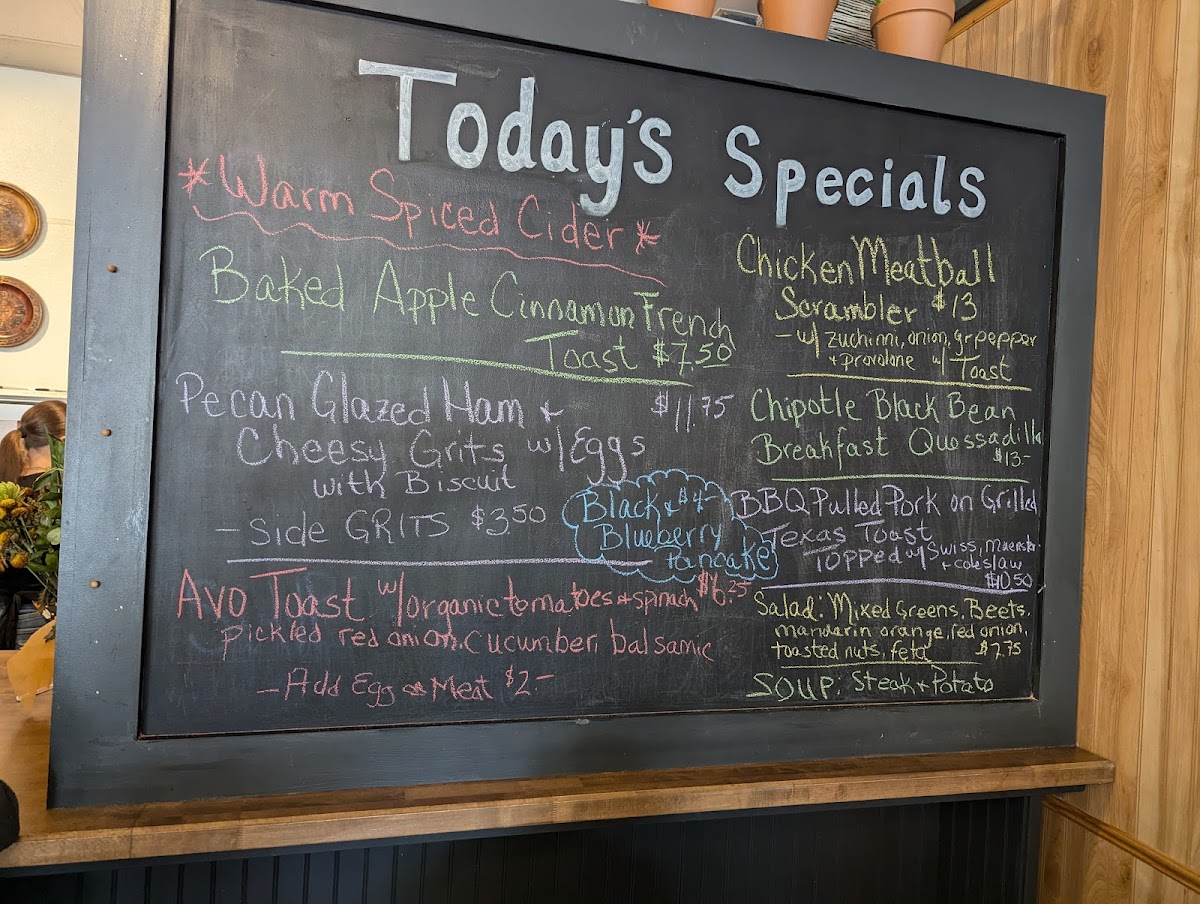 Today's Specials
*Warm Spiced Cider*
Baked Apple Cinnamon French
Toast $7.50
Pecan Glazed Ham + $11.75
Cheesy Grits w/ Eggs
with Biscuit
- Side GRITS $3.50
Black & $4-
Blueberry
Pancake
Avo Toast w/organic tomatoes + spinach $6.25
pickled red onion, cucumber, balsamic
- Add Egg or Meat $2.-
Chicken Meatball
Scrambler $13
- w/ zuchinni, onion, gr pepper
+ provolone w/ Toast
Chipotle Black Bean
Breakfast Quessadilla
$13.-
BBQ Pulled Pork on Grilled
Texas Toast
Topped w/ Swiss, Muenster
+ coleslaw
$10.50
Salad: Mixed Greens, Beets,
mandarin orange, red onion,
toasted nuts, feta $7.75
SOUP: Steak + Potato